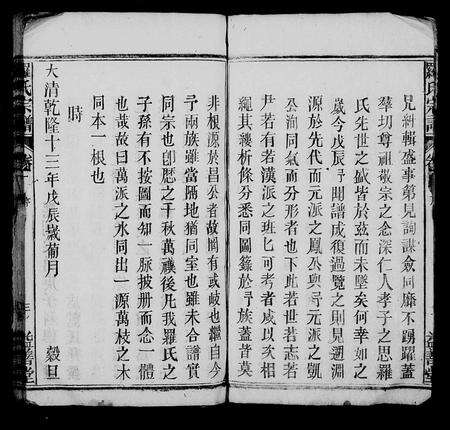 羅氏宗譜
兄糾輯盛事第見詢謀僉同靡不踴躍蓋
孳切尊祖敬宗之念深仁人孝子之思羅
氏先世之盛皆於玆而未墜矣何幸如之
歲今戊辰㝷聞譜成復過覽之則見遡淵
源於先代而元派之鳳公與㝷元派之凱
公洵同氣而分形者也下此若世若志若
尹若有若漢派之班匕可考者咸以次相
繩其縷析條分悉同圖錄於㝷族蓋皆莫
非根源於昌公者故間有或岐也繼自今
㝷兩族雖當隔地猶當同室也雖未合譜實
同宗也卽歷之千秋萬禩後凡我羅氏之
子孫有不按圖而知一脉披册而念一體
也哉故曰萬派之水同出一源萬枝之木
同本一根也
時
大清乾隆十三年戊辰歲菊月 穀旦
羅氏宗譜